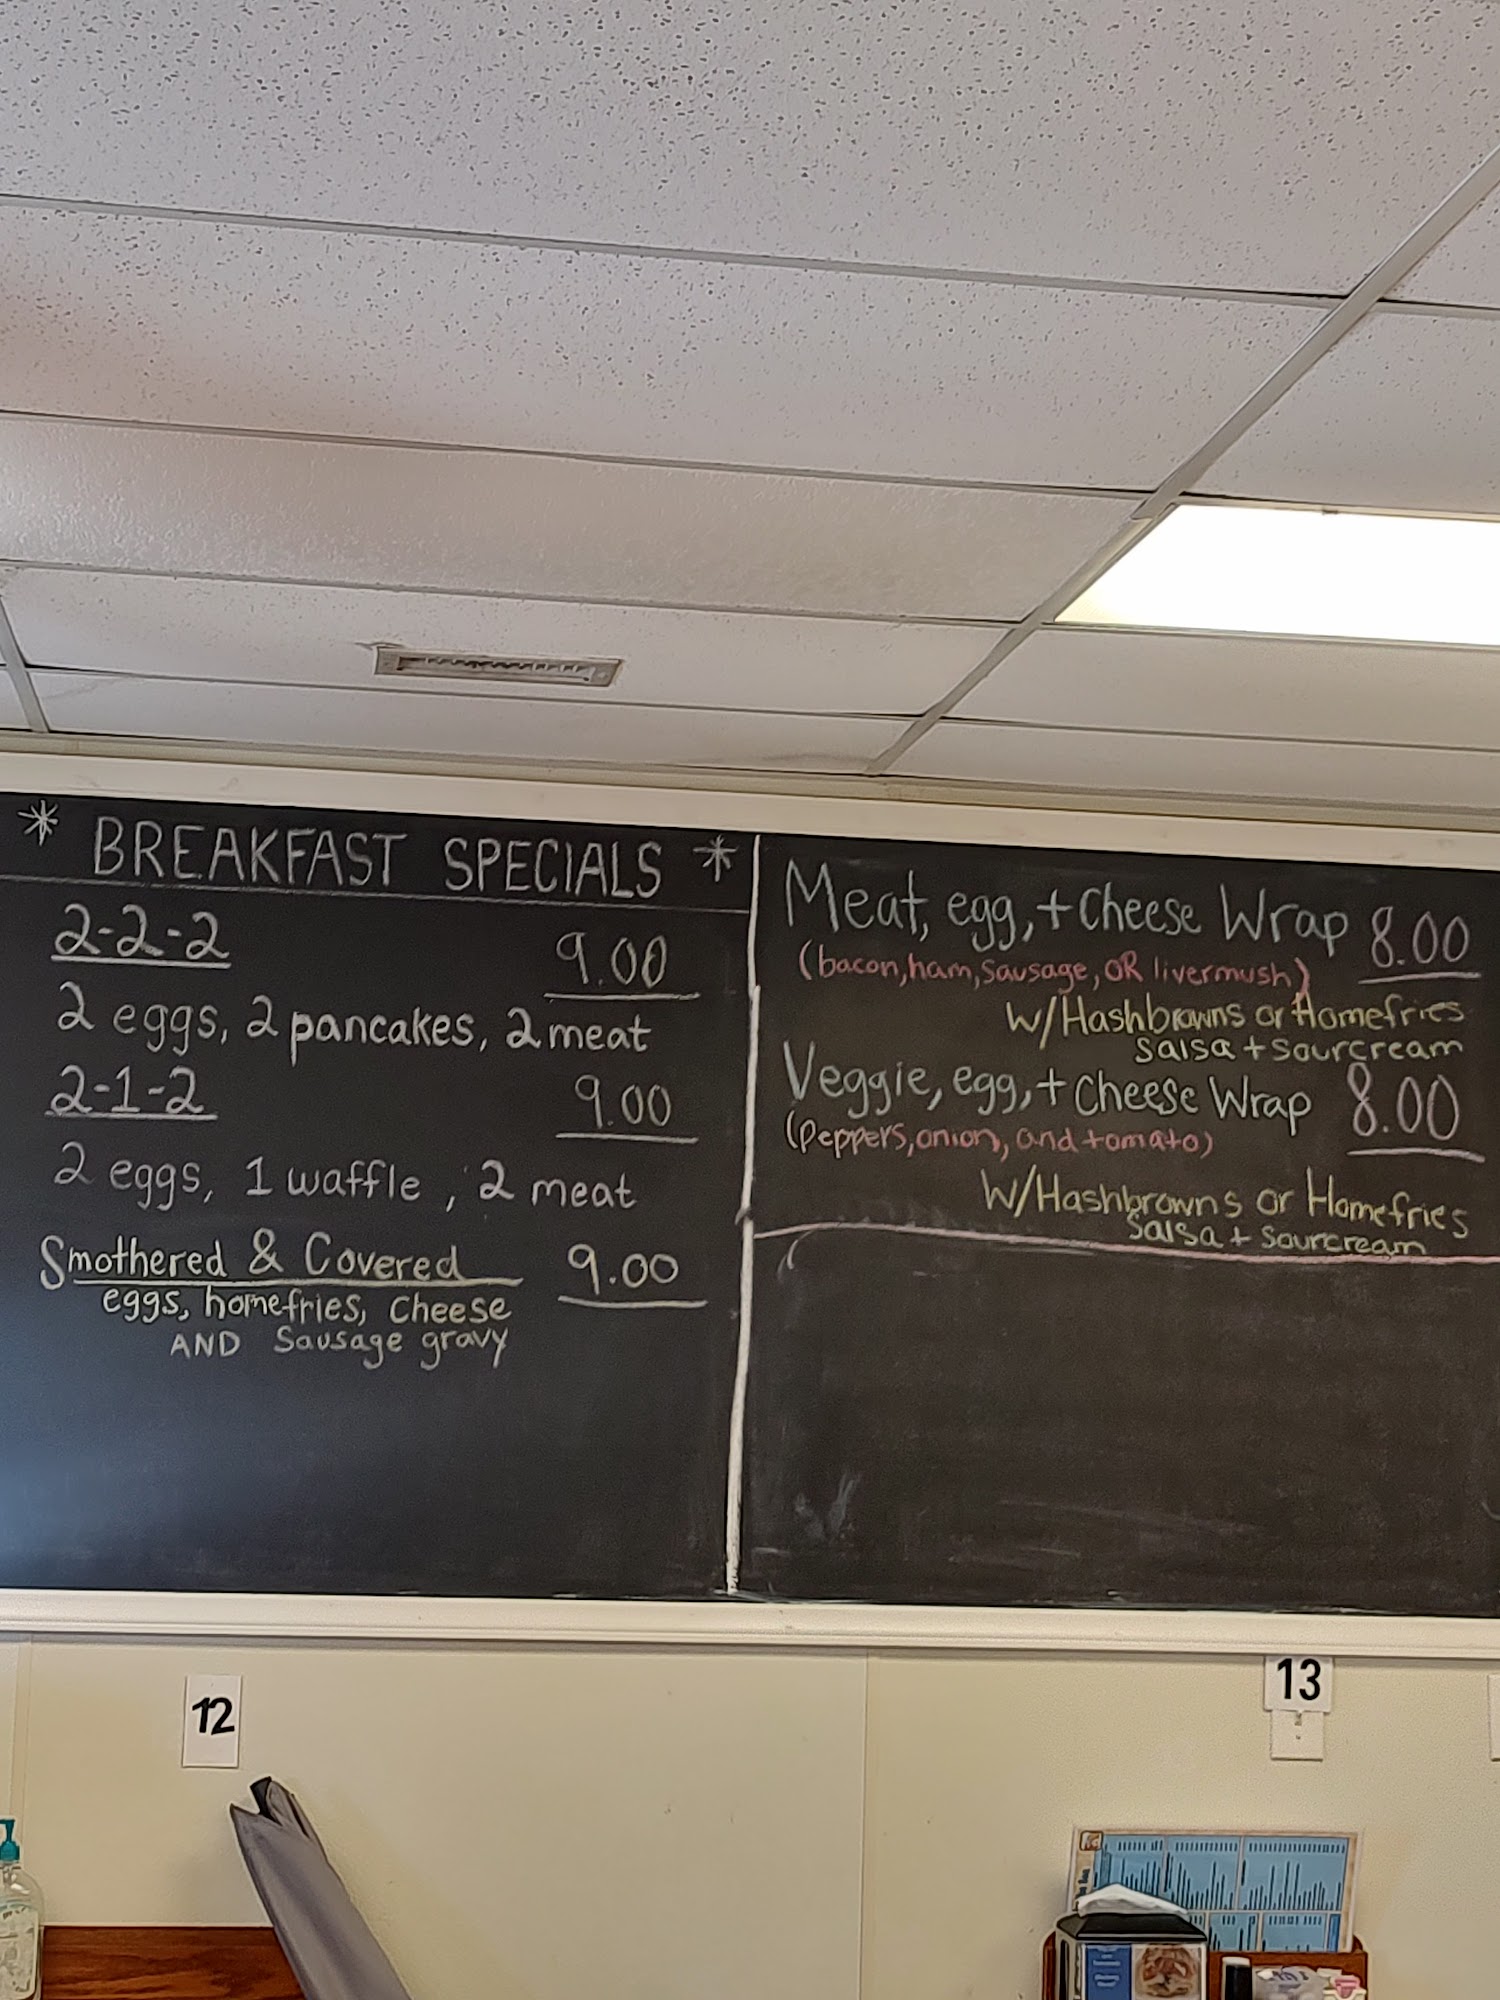 * BREAKFAST SPECIALS *
2-2-2 9.00
2 eggs, 2 pancakes, 2 meat
2-1-2 9.00
2 eggs, 1 waffle, 2 meat
Smothered & Covered 9.00
eggs, homefries, cheese
AND Sausage gravy
Meat, egg, + Cheese Wrap 8.00
(bacon, ham, sausage, OR livermush)
W/Hashbrowns or Homefries
Salsa + sourcream
Veggie, egg, + Cheese Wrap 8.00
(peppers, onion, and tomato)
W/Hashbrowns or Homefries
Salsa + sourcream
12
13